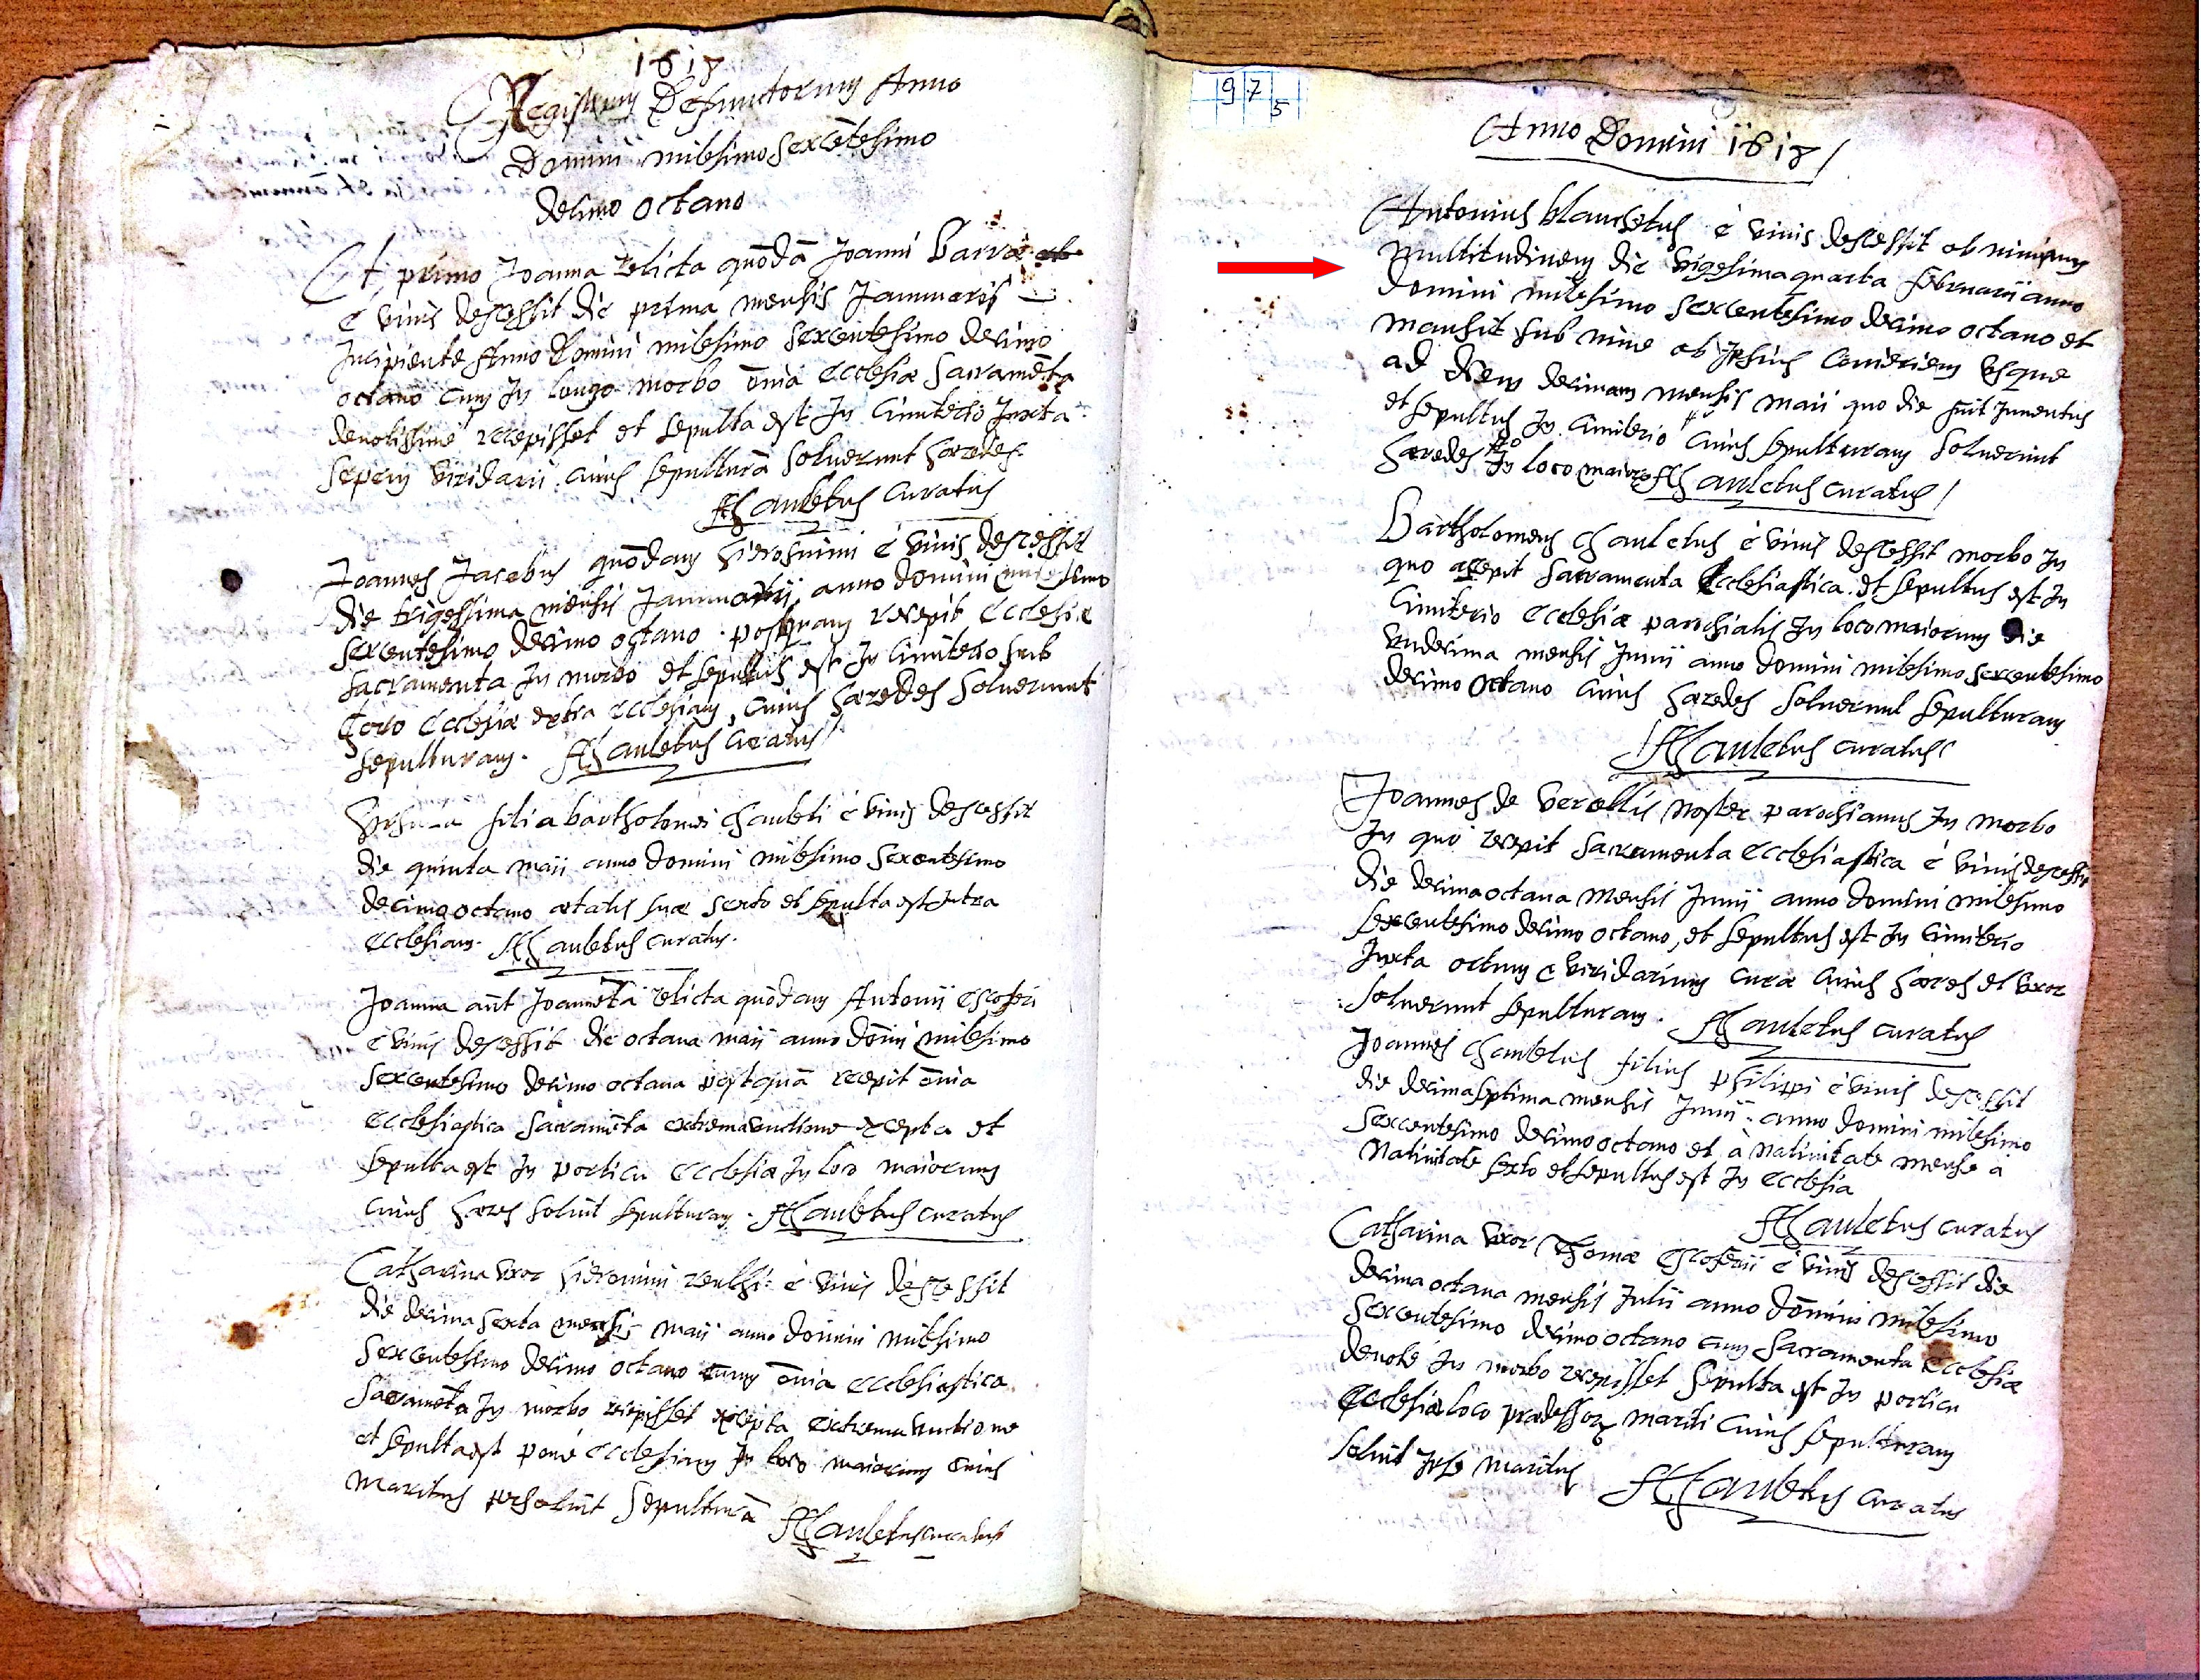 1618
Registrum Defunctorum Anno
Domini milesimo sexcētesimo
decimo octauo
Et primo Joanna relicta quōdā Joanni
è viuis descessit die prima mensis Januarii
Incipiente Anno Domini milesimo sexcentesimo decimo
octauo cum In longo morbo ōnia Ecclesiæ Sacramēta
deuotissimè recepisset et sepulta est In Cimiterio Juxta
sepem viridarii cuius sepulturā soluerunt hæredes.
Chauletus Curatus
Joannes Jacobus quōdam Hieronimi è viuis descessit
die trigessima mensis Januarii, anno domini milesimo
sexcentesimo decimo octauo. postquam recepit Ecclesiæ
sacramenta In morbo et sepultus est In Cimiterio sub
Choro Ecclesiæ extra Ecclesiam, Cuius hæredes soluerunt
sepulturam. Chauletus Curatus
filia bartholomei Chauleti è viuis descessit
die quinta maii anno domini milesimo sexcentesimo
decimo octauo ætatis suæ sexto et sepulta est Intra
Ecclesiam. Chauletus curatus.
Joanna aūt Joanneta relicta quōdam Antonii Escoferi
è viuis descessit die octaua maii anno dōmi milesimo
sexcentesimo decimo octauo postquā recepit ōnia
Ecclesiastica sacramēta extrema unctione excepta et
sepulta est In porticu Ecclesiæ In loco maiorum
Cuius hæres soluit sepulturam. Chauletus Curatus
Catharina vxor Hieronimi è viuis descessit
die decima sexta mensis maii anno domini milesimo
sexcentesimo decimo octauo cum ōnia Ecclesiastica
Sacramēta In morbo recepisset excepta extrema vnctione
et sepulta est ponè Ecclesiam In loco maiorum Cuius
Maritus persoluit sepulturā Chauletus curatus
975
Anno Domini 1618
Antonius blanchetus è viuis descessit ob niuium
multitudinem die vigesima quarta februarii anno
Domini milesimo sexcentesimo decimo octauo et
mansit sub niue ob Ipsius Congeriem vsque
ad diem decimam mensis maii quo die fuit Inuentus
et sepultus In Cimiterio Cuius sepulturam soluerunt
hæredes In loco maiorum Chauletus curatus
Bartholomeus Chauletus è viuis descessit morbo In
quo accepit sacramenta Ecclesiastica et sepultus est In
Cimiterio Ecclesiæ parochialis In loco maiorum die
vndecima mensis Junii anno domini milesimo sexcentesimo
decimo octauo Cuius hæredes soluerunt sepulturam
Chauletus curatus
Joannes de Vercellis noster parochianus In morbo
In quo recepit sacramenta Ecclesiastica è viuis descessit
die decima octaua mensis Junii anno domini milesimo
sexcentesimo decimo octauo, et sepultus est In Cimiterio
Juxta viridarium curæ Cuius hæres et vxor
soluerunt sepulturam. Chauletus Curatus
Joannes Chauletus filius philippi è viuis descessit
die decima septima mensis Junii anno domini milesimo
sexcentesimo decimo octauo et à natiuitate mense à
natiuitate sexto et sepultus est In Ecclesia
Chauletus curatus
Catharina vxor Thomæ Escoferii è viuis descessit die
decima octaua mensis Julii anno dōmini milesimo
sexcentesimo decimo octauo cum Sacramenta Ecclesiæ
deuotè In morbo recepisset sepulta est In porticu
Ecclesiæ loco mariti Cuius sepulturam
soluit Ipse maritus Chauletus Curatus